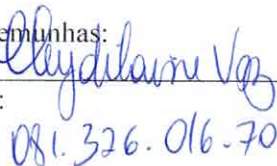 emunhas:
Cleydilaine Vaz
:
081.326.016-70